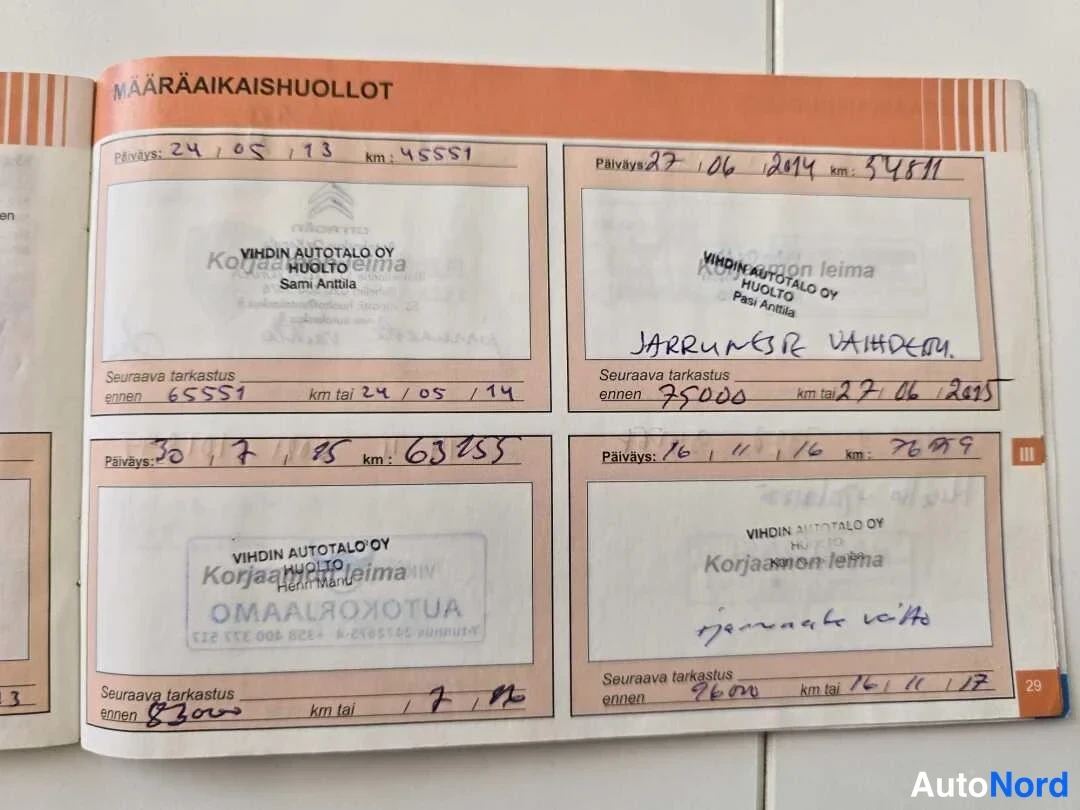 MÄÄRÄAIKAISHUOLLOT
Päiväys: 24 / 05 / 13 km: 45551
CITROËN
Korjaamon leima
VIHDIN AUTOTALO OY
HUOLTO
Sami Anttila
Seuraava tarkastus
ennen 65551 km tai 24 / 05 / 14
Päiväys: 27 / 06 / 2014 km: 54811
Korjaamon leima
VIHDIN AUTOTALO OY
HUOLTO
Pasi Anttila
JARRUNESTE VAIHDETTU.
Seuraava tarkastus
ennen 75000 km tai 27 / 06 / 2015
Päiväys: 30 / 7 / 15 km: 63155
Korjaamon leima
VIHDIN AUTOTALO OY
HUOLTO
Henri Manu
AUTOKORJAAMO
Seuraava tarkastus
ennen 83000 km tai / 7 / 16
Päiväys: 16 / 11 / 16 km:
Korjaamon leima
VIHDIN AUTOTALO OY
HUOLTO
vaihto
Seuraava tarkastus
ennen 96000 km tai 16 / 11 / 17
en
III
29
13
AutoNord